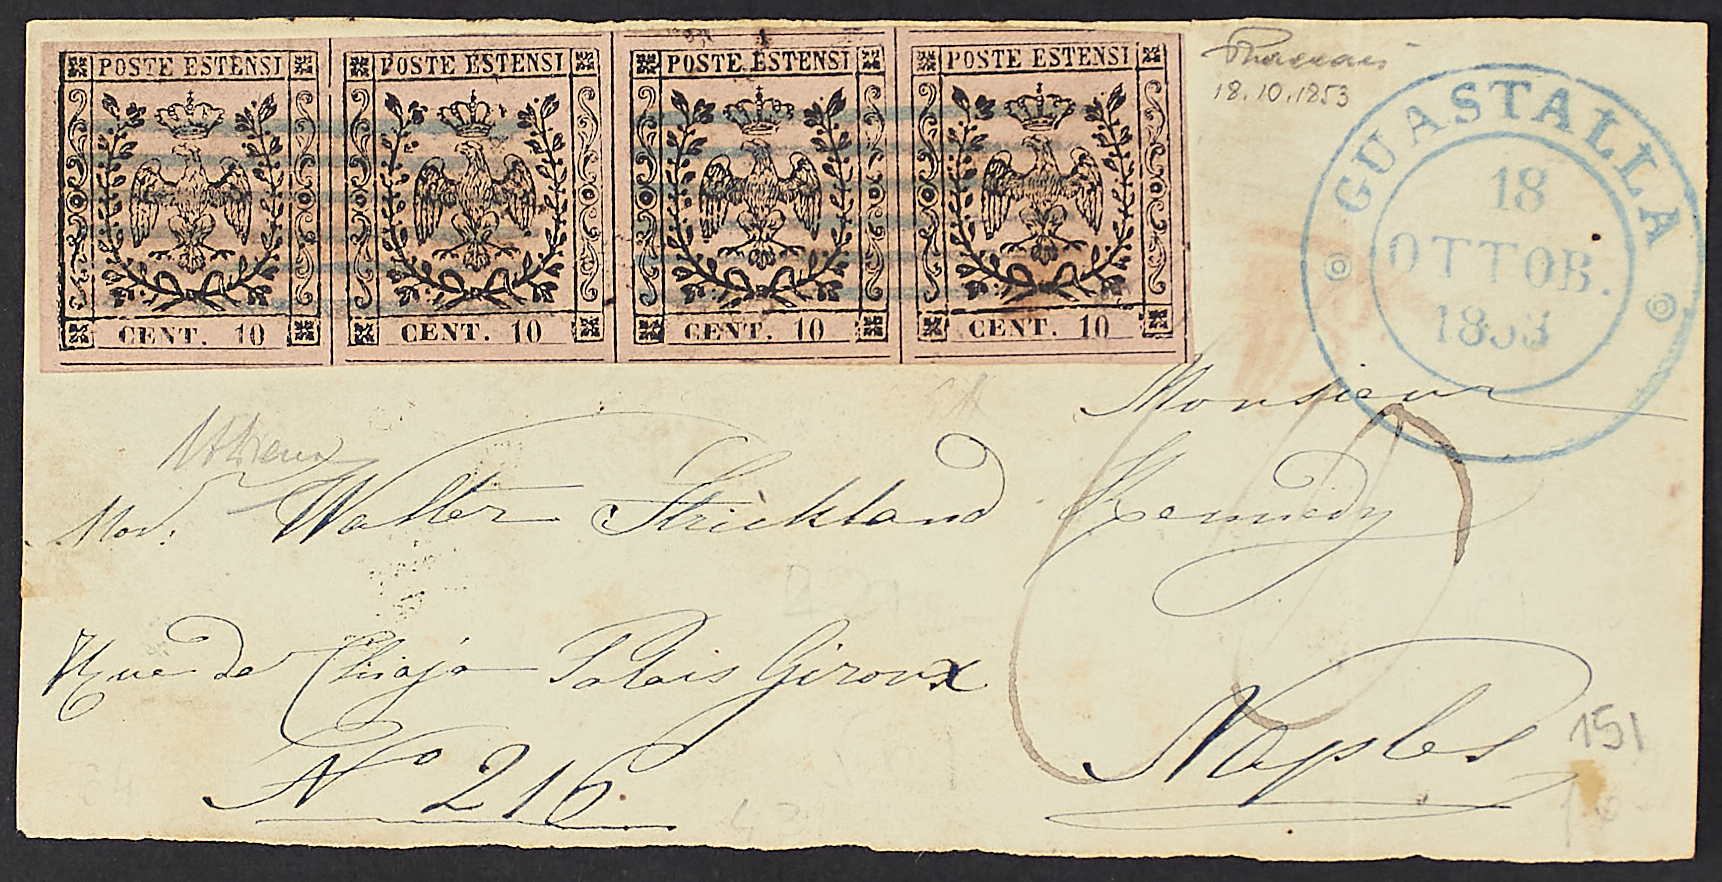 POSTE ESTENSI POSTE ESTENSI POSTE ESTENSI POSTE ESTENSI
CENT. 10 CENT. 10 CENT. 10 CENT. 10
18.10.1853
GUASTALLA
18
OTTOB.
1853
Monsieur
Mor. Walter Strickland Kennedy
Rue de Chiaja Palais Giroux
No 216
Naples
151